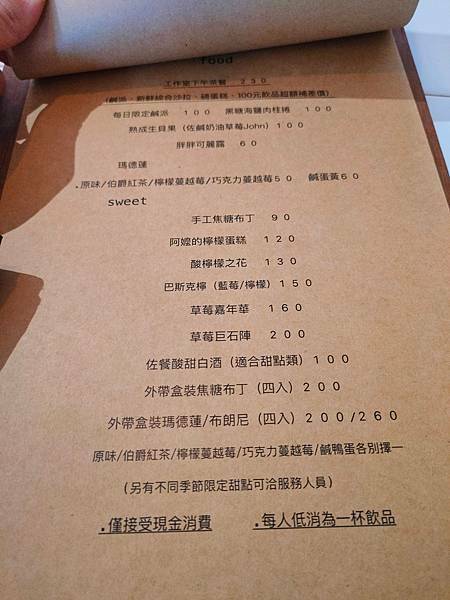 food
工作室下午茶餐 230
(鹹派、新鮮綜合沙拉、磅蛋糕、100元飲品超額補差價)
每日限定鹹派 100 黑糖海鹽肉桂捲 100
熟成生貝果(佐鹹奶油草莓John)100
胖胖可麗露 60
瑪德蓮
.原味/伯爵紅茶/檸檬蔓越莓/巧克力蔓越莓50 鹹蛋黃60
sweet
手工焦糖布丁 90
阿嬤的檸檬蛋糕 120
酸檸檬之花 130
巴斯克檸(藍莓/檸檬)150
草莓嘉年華 160
草莓巨石陣 200
佐餐酸甜白酒(適合甜點類)100
外帶盒裝焦糖布丁(四入)200
外帶盒裝瑪德蓮/布朗尼(四入)200/260
原味/伯爵紅茶/檸檬蔓越莓/巧克力蔓越莓/鹹鴨蛋各別擇一
(另有不同季節限定甜點可洽服務人員)
.僅接受現金消費 .每人低消為一杯飲品